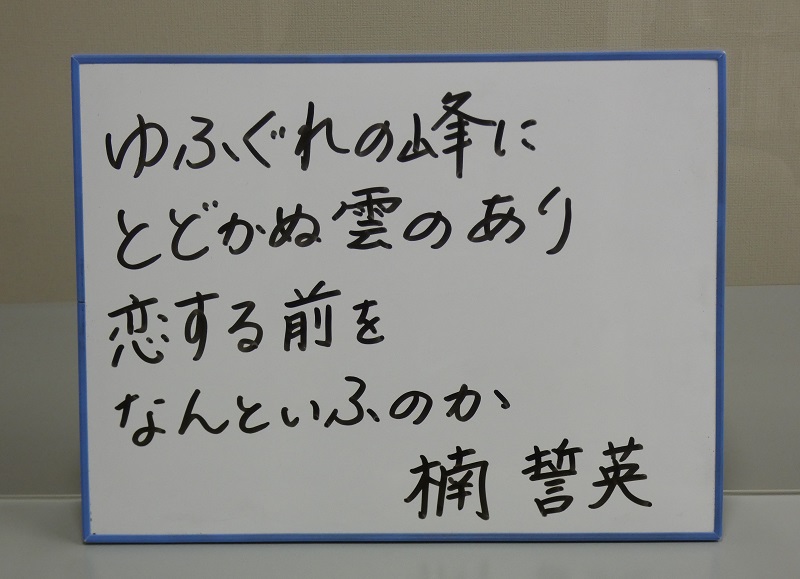 ゆふぐれの峰に
とどかぬ雲のあり
恋する前を
なんといふのか
楠 誓英